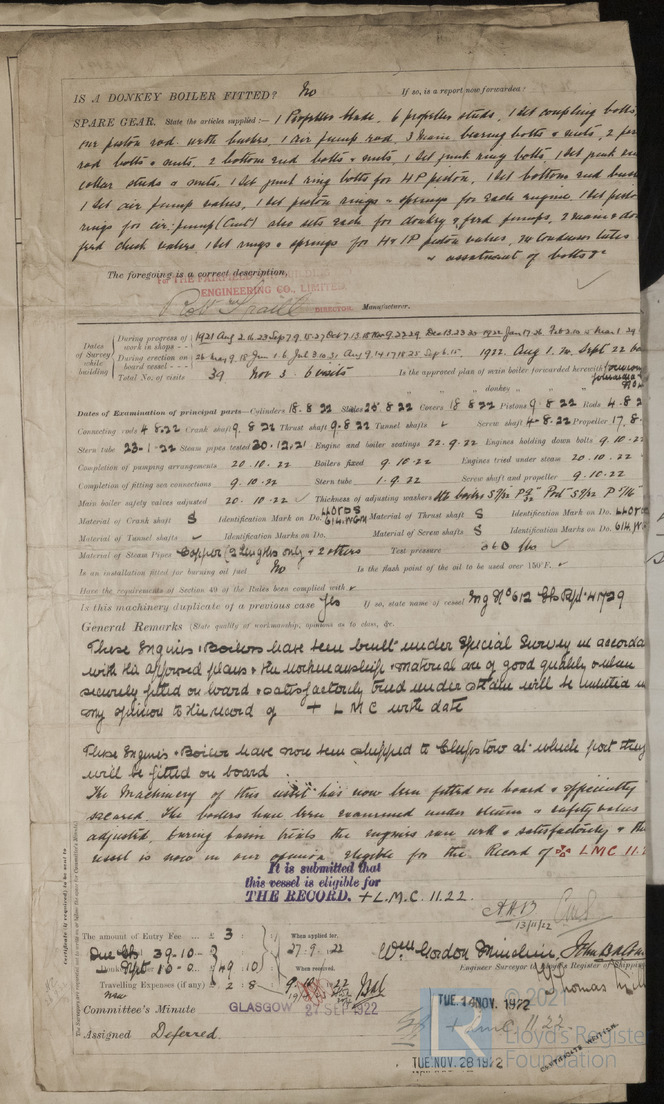 IS A DONKEY BOILER FITTED? No If so, is a report now forwarded?
SPARE GEAR. State the articles supplied:— 1 Propeller blade, 6 propeller studs, 1 set coupling bolts
one piston rod with bushes, 1 air pump rod, 3 main bearing bolts & nuts, 2
rod bolts & nuts, 2 bottom end bolts & nuts, 1 set junk ring bolts, 1 set
studs & nuts. 1 set junk ring bolts for HP piston, 1 set bottom end
1 set air pump valves, 1 set piston rings & springs for each engine. 1 set
rings for air pump also sets each for donkey & feed pumps, 2 main &
feed check valves, 1 set rings & springs for H & IP piston valves, condenser tubes
& assortment of bolts &c
The foregoing is a correct description,
For THE FAIRFIELD
ENGINEERING CO., LIMITED.
DIRECTOR. Manufacturer.
Dates of Survey while building
During progress of work in shops - - 1921 Aug 2.16.23 Sep 7.9.15.27 Oct 7.13.18 Nov 9.22.29 Dec 13.23 1922 Jan 17.26 Feb
During erection on board vessel - - - 26 May 9.18 Jun 1.6 Jul 3.10.31 Aug 9.14.17.18.25 Sep 6.15. 1922. Aug 1. Sept 22
Total No. of visits 39 Nov 3. 6 visits Is the approved plan of main boiler forwarded herewith
" " " donkey " " "
Dates of Examination of principal parts—Cylinders 18.8.22 Slides 25.8.22 Covers 18.8.22 Pistons 9.8.22 Rods 4.8.2
Connecting rods 4.8.22 Crank shaft 9.8.22 Thrust shaft 9.8.22 Tunnel shafts ✓ Screw shaft 4.8.22 Propeller 17.8.
Stern tube 23.1.22 Steam pipes tested 20.12.21 Engine and boiler seatings 22.9.22 Engines holding down bolts 9.10.22
Completion of pumping arrangements 20.10.22 Boilers fixed 9.10.22 Engines tried under steam 20.10.22
Completion of fitting sea connections 9.10.22 Stern tube 1.9.22 Screw shaft and propeller 9.10.22
Main boiler safety valves adjusted 20.10.22 Thickness of adjusting washers
Material of Crank shaft S Identification Mark on Do. LLOYDS 614.WGM Material of Thrust shaft S Identification Mark on Do. LLOYDS 614.
Material of Tunnel shafts ✓ Identification Marks on Do. Material of Screw shafts S Identification Marks on Do.
Material of Steam Pipes Copper (2 lengths only & 2 others Test pressure 360 lbs ✓
Is an installation fitted for burning oil fuel No Is the flash point of the oil to be used over 150°F. ✓
Have the requirements of Section 49 of the Rules been complied with ✓
Is this machinery duplicate of a previous case Yes If so, state name of vessel Eng No 612 Gls Rpt 41729
General Remarks (State quality of workmanship, opinions as to class, &c.
These Engines & Boilers have been built under Special Survey in accorda
with the approved plans & the workmanship & material are of good quality & when
securely fitted on board & satisfactorily tried under steam will be entitled in
my opinion to the record of + L M C with date
These Engines & Boiler have now been shipped to Chepstow at which port they
will be fitted on board.
The Machinery of this vessel has now been fitted on board & efficiently
secured. The boilers have been examined under steam & safety valves
adjusted, during basin trials the engines ran well & satisfactorily & the
vessel is now in our opinion eligible for the Record of + LMC 11.2
It is submitted that
this vessel is eligible for
THE RECORD. + L.M.C. 11.22.
13/11/22
Certificate (if required) to be sent to
The amount of Entry Fee ... £ 3 : When applied for,
39-10- 27.9.22
10-0- £ 49 : 10 When received,
Travelling Expenses (if any) £ 2 : 8
Wm Gordon
Engineer Surveyor to Lloyd's Register of Shipping
Thomas
Committee's Minute GLASGOW 27 SEP 1922
Assigned Deferred.
TUE. 14 NOV. 1922
+ LMC 11.22.
TUE. NOV. 28 1922
CERTIFICATE WRITTEN.
© 2021
Lloyd's Register
Foundation